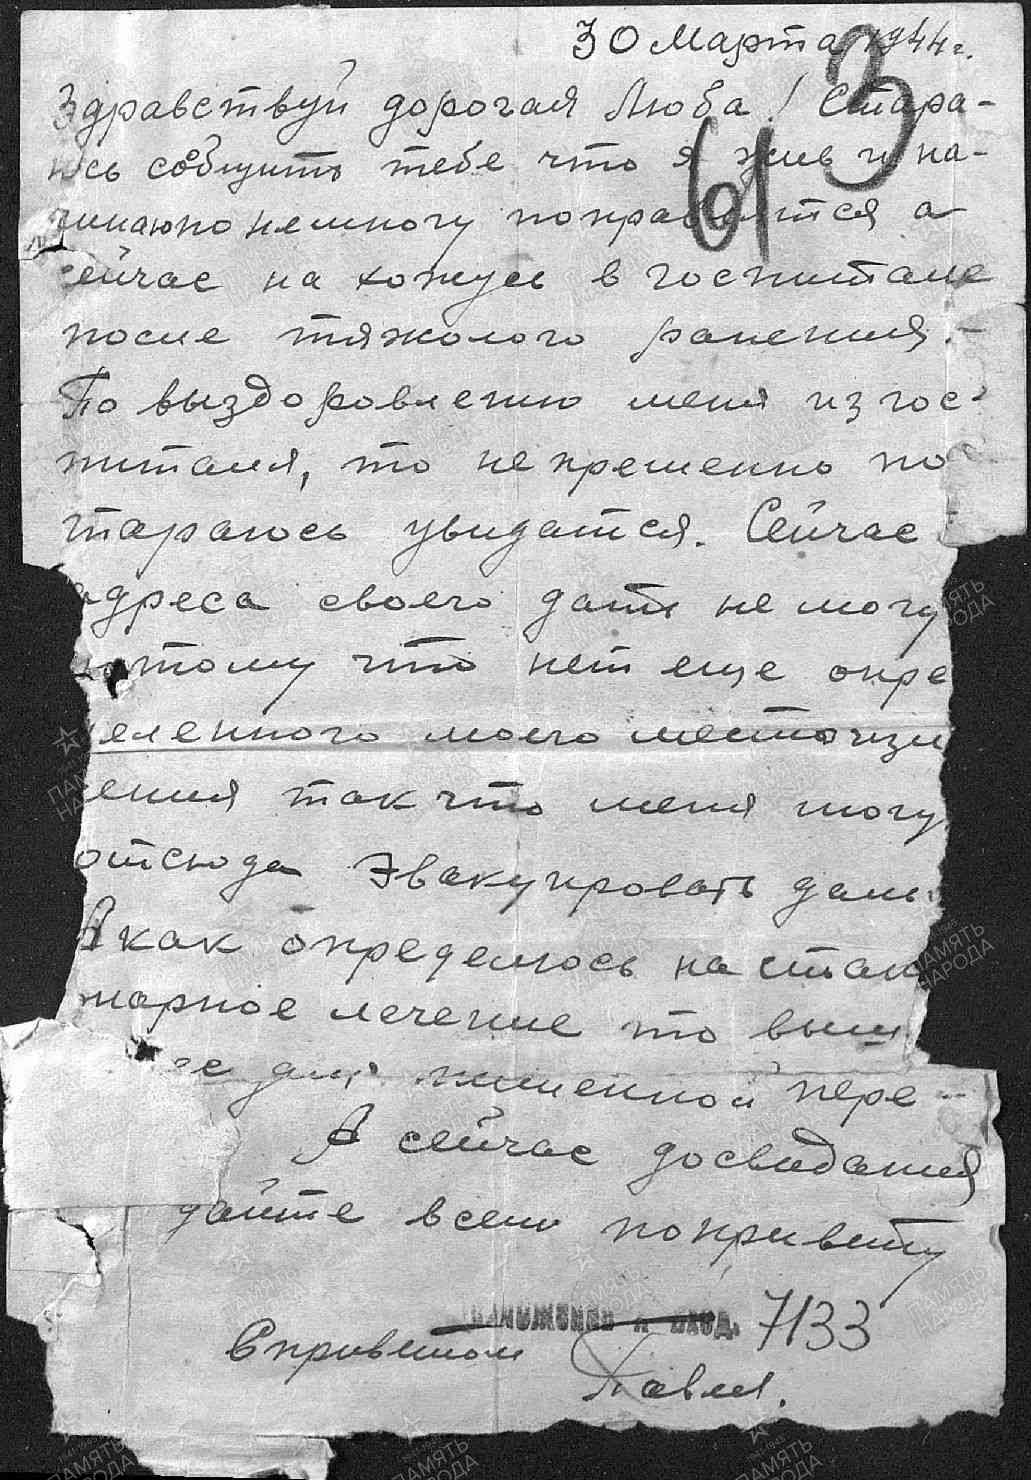 30 Марта 1944 г.
Здравствуй дорогая Люба! Стара-
юсь сообщить тебе что я жив и на-
чинаю понемногу поправлятся а
сейчас на хожусь в госпитале
после тяжолого ранения.
По выздоровлению меня из гос-
питаля, то не пременно по
тараюсь увидатся. Сейчас
адреса своего дать не могу
потому что нет еще опре
деленного моего
ения так что меня могу
отсюда эвакуировать даль
А как определюсь на стац
нарное лечение то
пере-
А сейчас досвидания
дайте всем по привету
приложение к вход. 7133
С приветом
Павел.
613